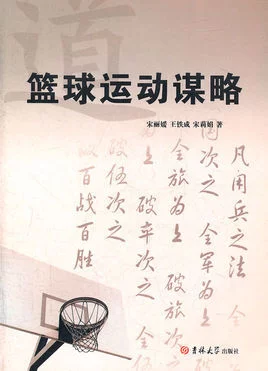 道
篮球运动谋略
宋丽媛 王铁成 宋莉娟 著
凡用兵之法
国次之全军为上
全旅为上破旅
为上破卒次之全伍
破伍次之
故百战百胜
吉林大学出版社